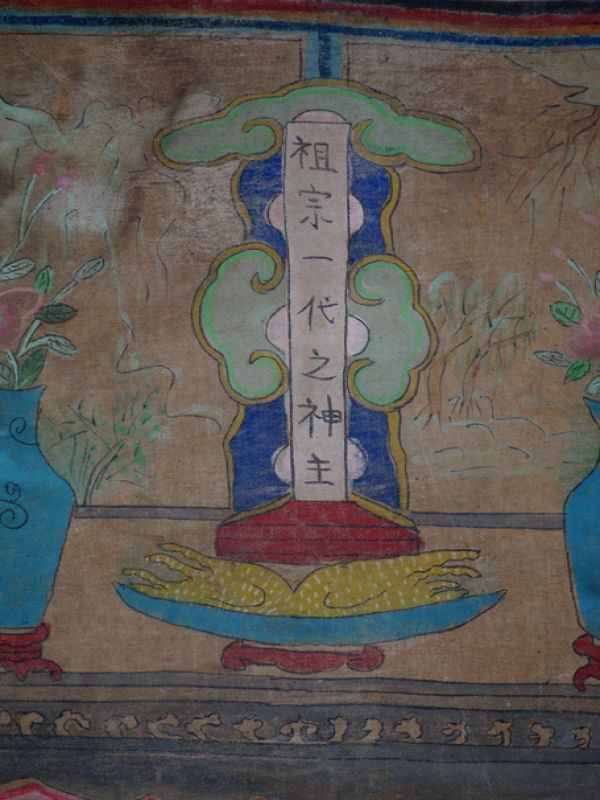 祖宗一代之神主